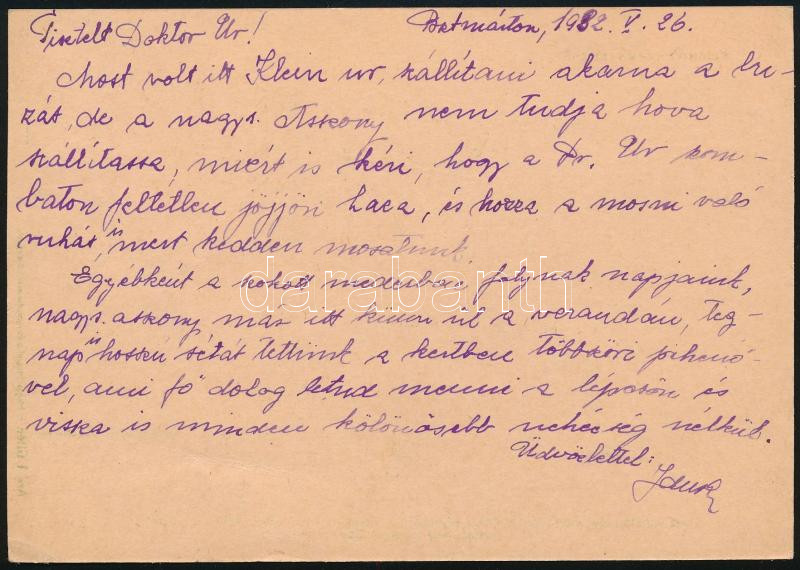 Tisztelt Doktor Úr! Postmárton, 1932. V. 26.
Most volt itt Klein ur, szállítani akarna a bu-
zát, de a nagys. Asszony nem tudja hova
szállítassa, miért is kéri, hogy a Dr. Ur szom-
baton feltétlen jöjjön haza, és hozza a mosni való
ruhát is, mert kedden mosatunk.
Egyébként a szokott mederban folynak napjaink,
nagys. asszony már itt künn ül a verandán, teg-
nap hosszú sétát tettünk a kertben többszöri pihenő-
vel, ami fő dolog letud menni a lépcsőn és
vissza is minden különösebb nehézség nélkül.
Üdvözlettel:
darabanth